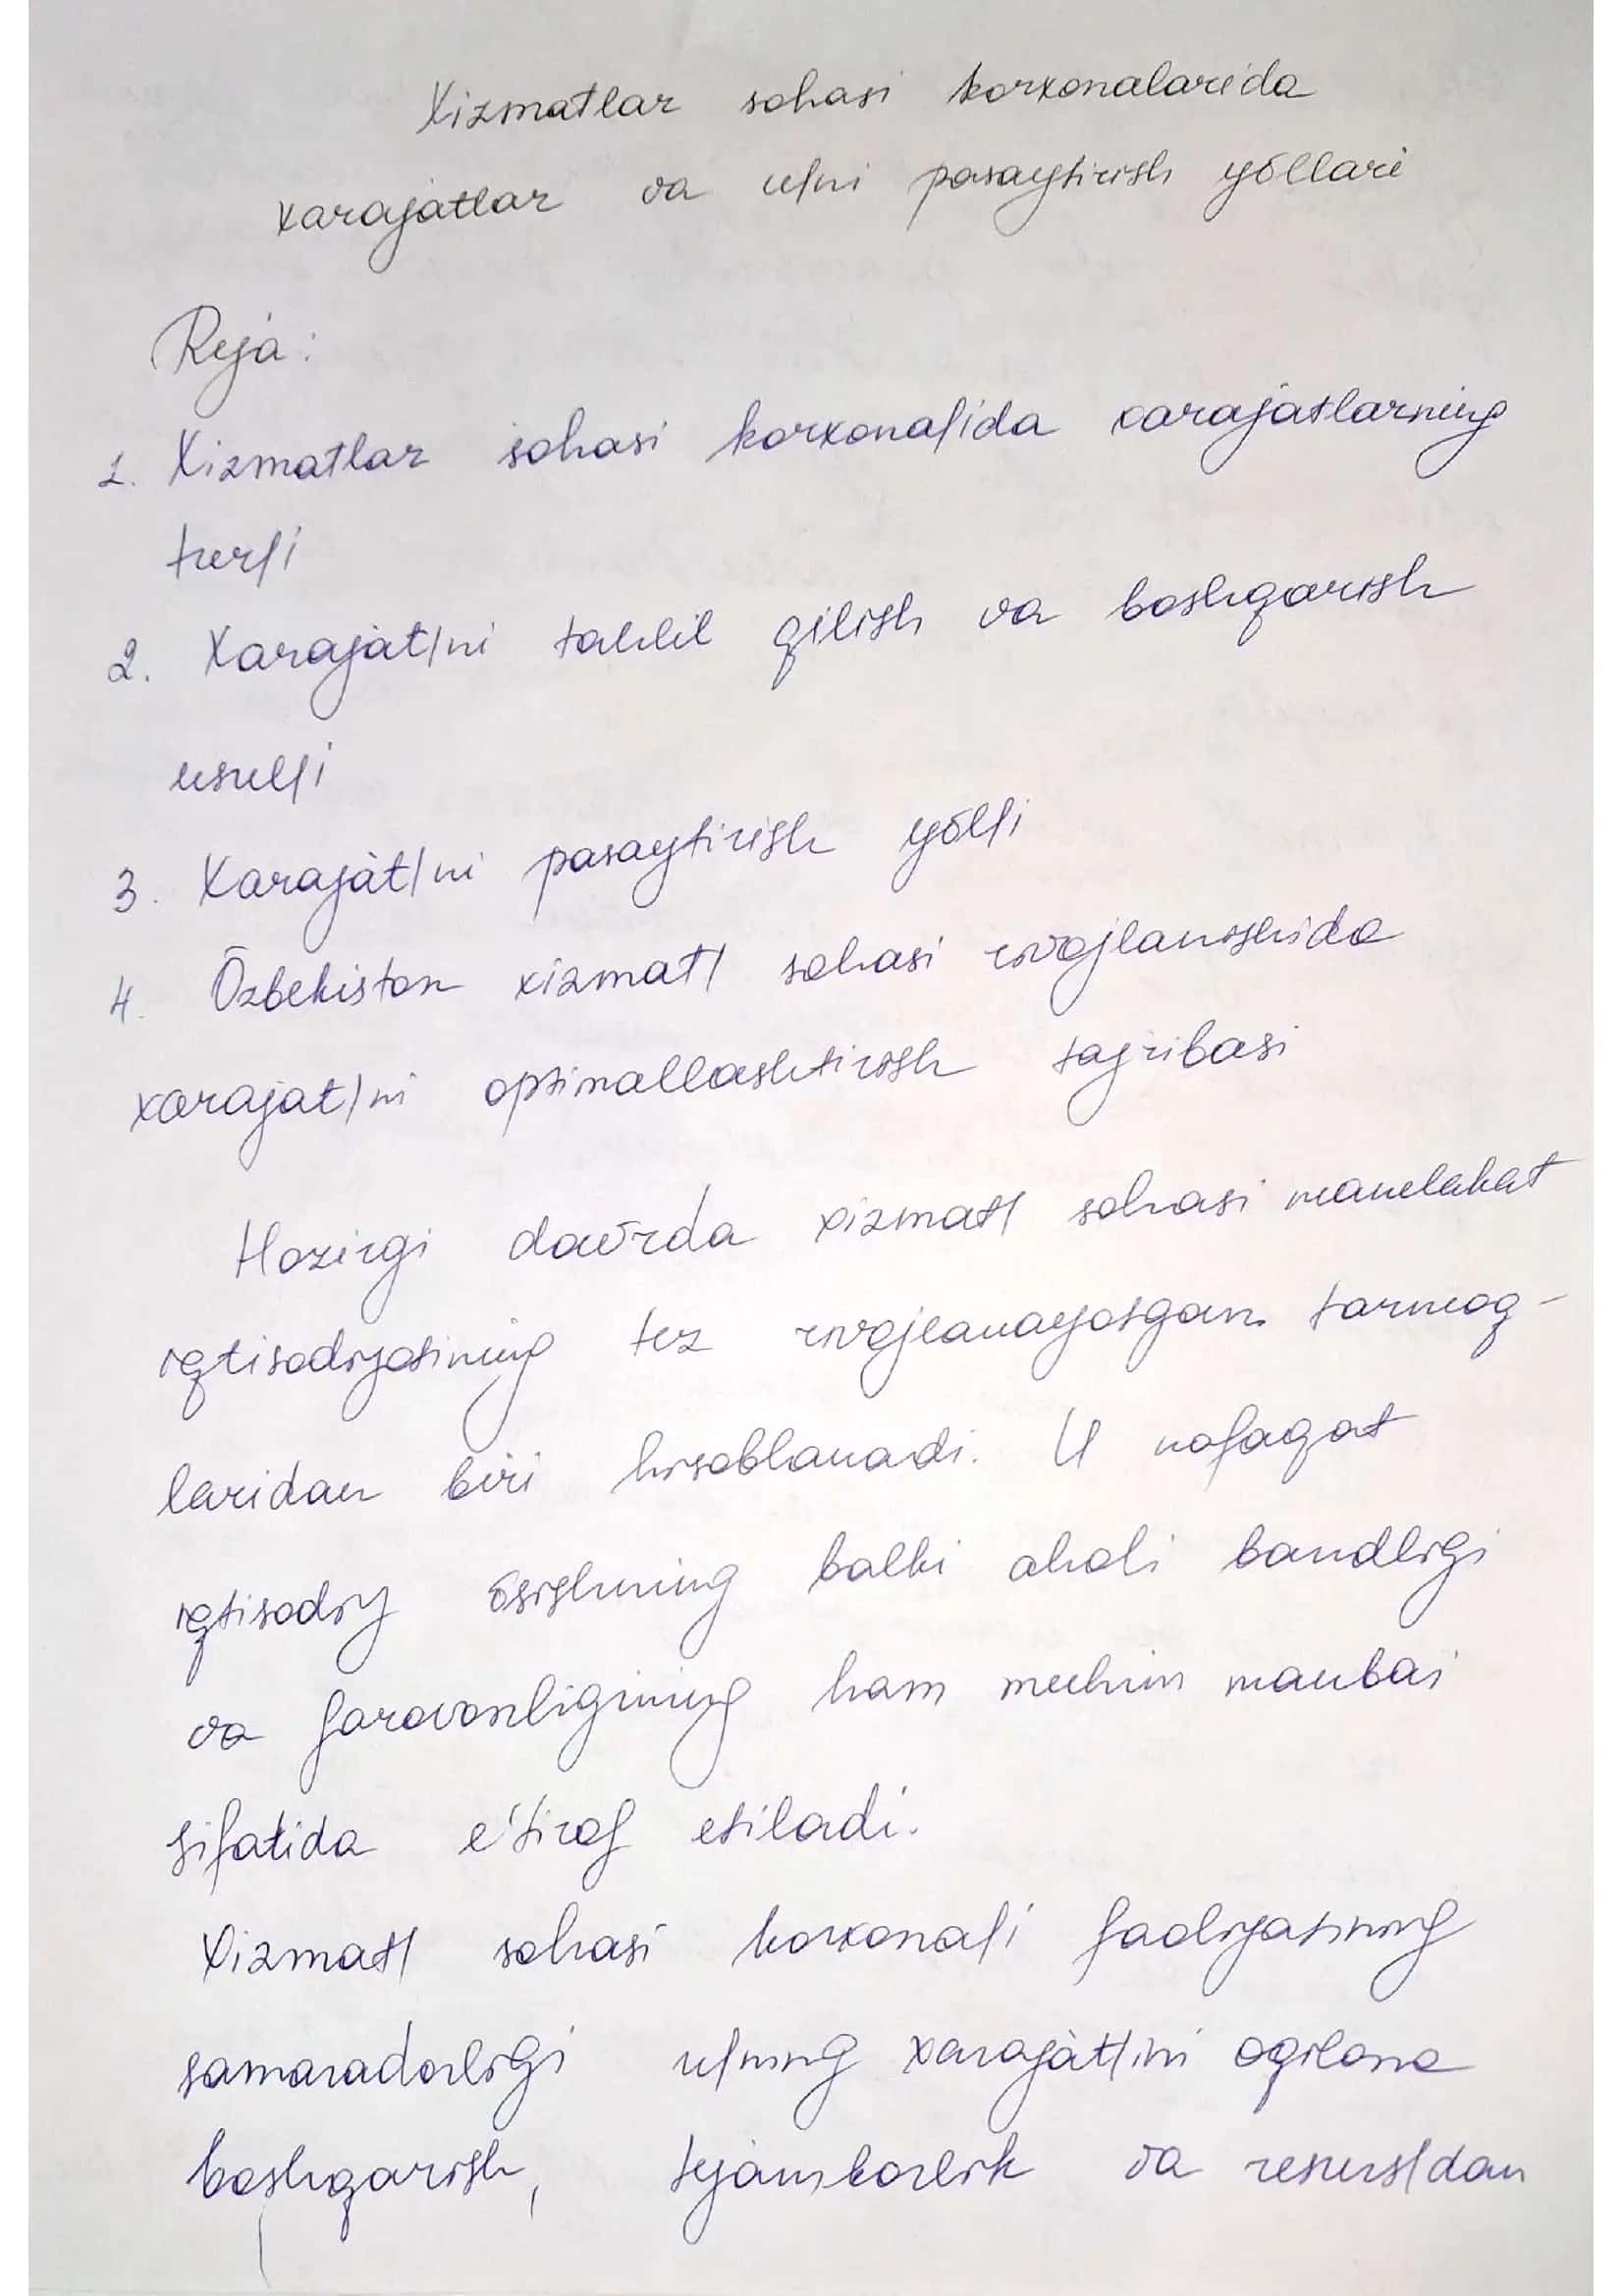 Xizmatlar sohasi korxonalarida
xarajatlar va u/ni pasaytirish yõllari
Reja:
1. Xizmatlar sohasi korxona/ida xarajatlarning
tur/i
2. Xarajat/ni tahlil qilish va boshqarish
usul/i
3. Xarajat/ni pasaytirish yõl/i
4. Õzbekiston xizmat/ sohasi rivojlanishida
xarajat/ni optimallashtirish tajribasi
Hozirgi davrda xizmat/ sohasi mamlakat
iqtisodiyotining tez rivojlanayotgan tarmoq-
laridan biri hisoblanadi. U nafaqat
iqtisodiy õsishning balki aholi bandligi
va farovonligining ham muhim manbai
sifatida e'tirof etiladi.
Xizmat/ sohasi korxona/i faoliyatining
samaradorligi u/ning xarajat/ini oqilona
boshqarish, tejamkorlik va resurs/dan